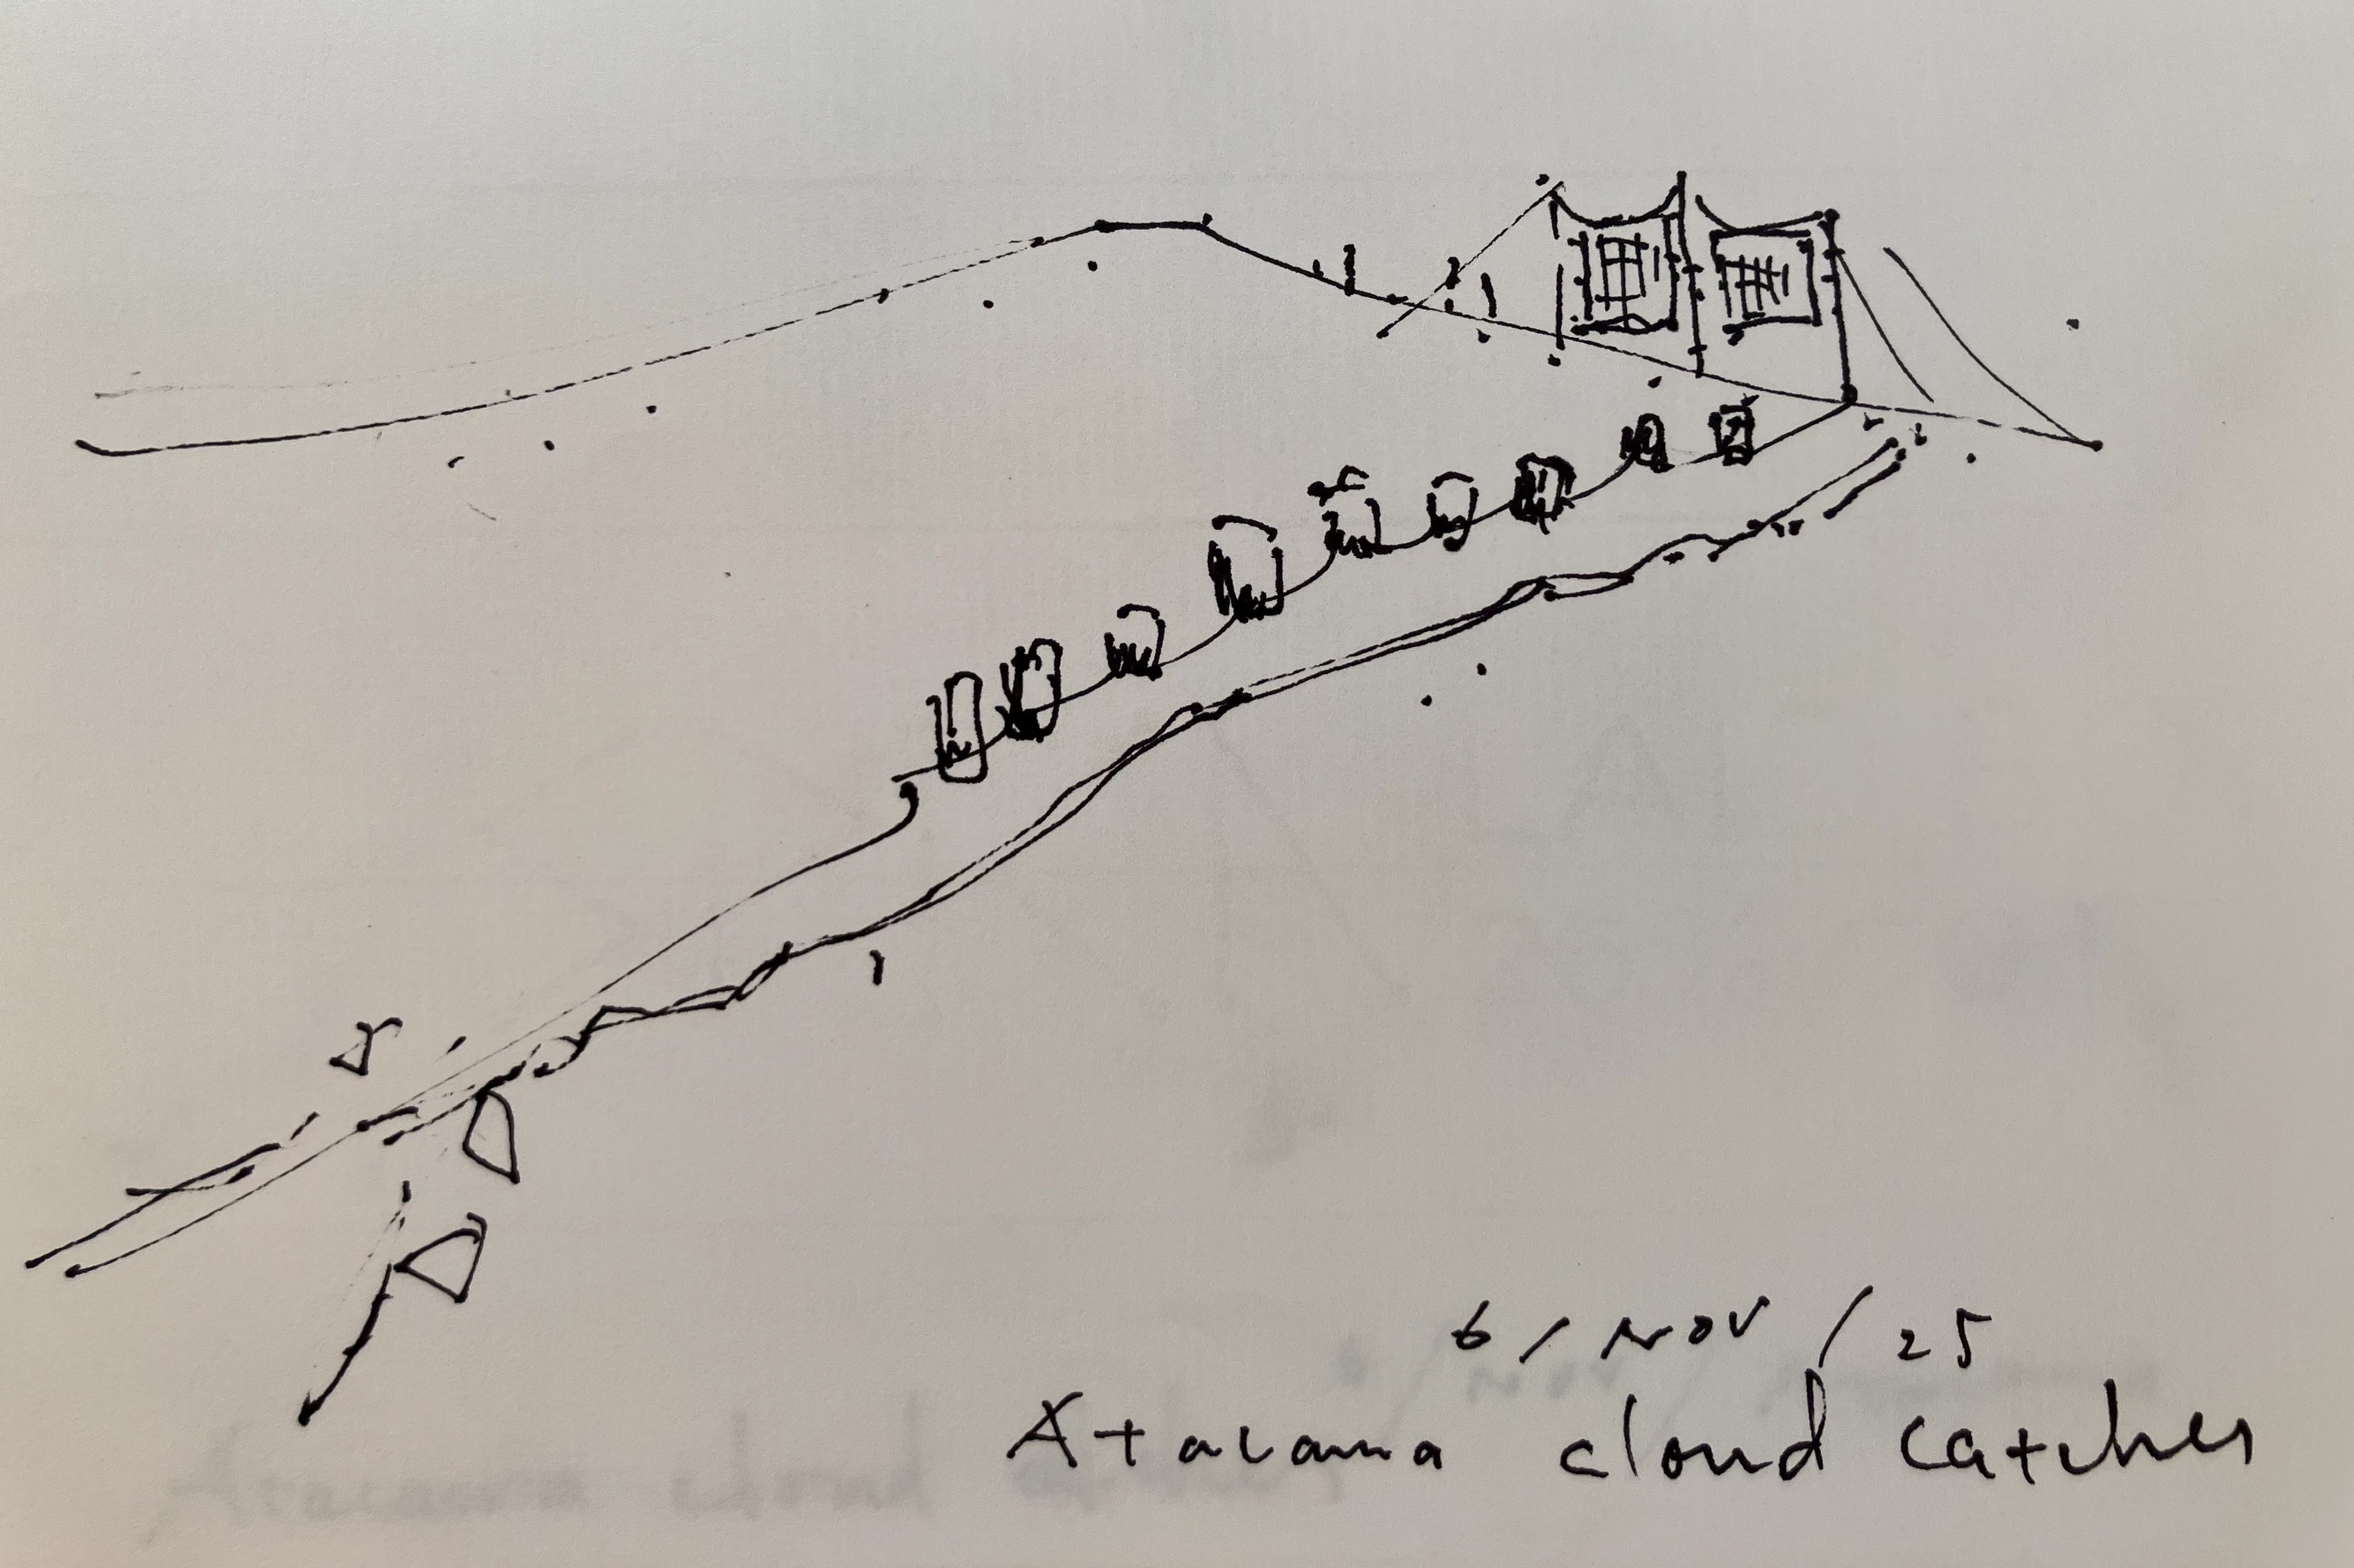 6 / NOV / 25
Atacama cloud catcher